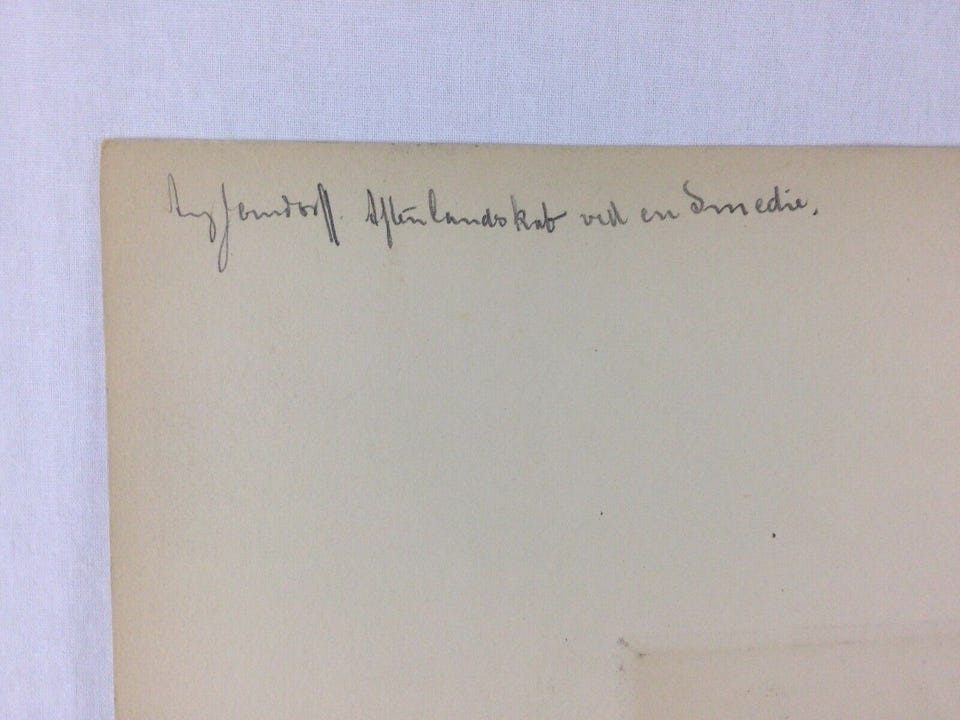 Aug Jerndorff. Aftenlandskab ved en Smedie.